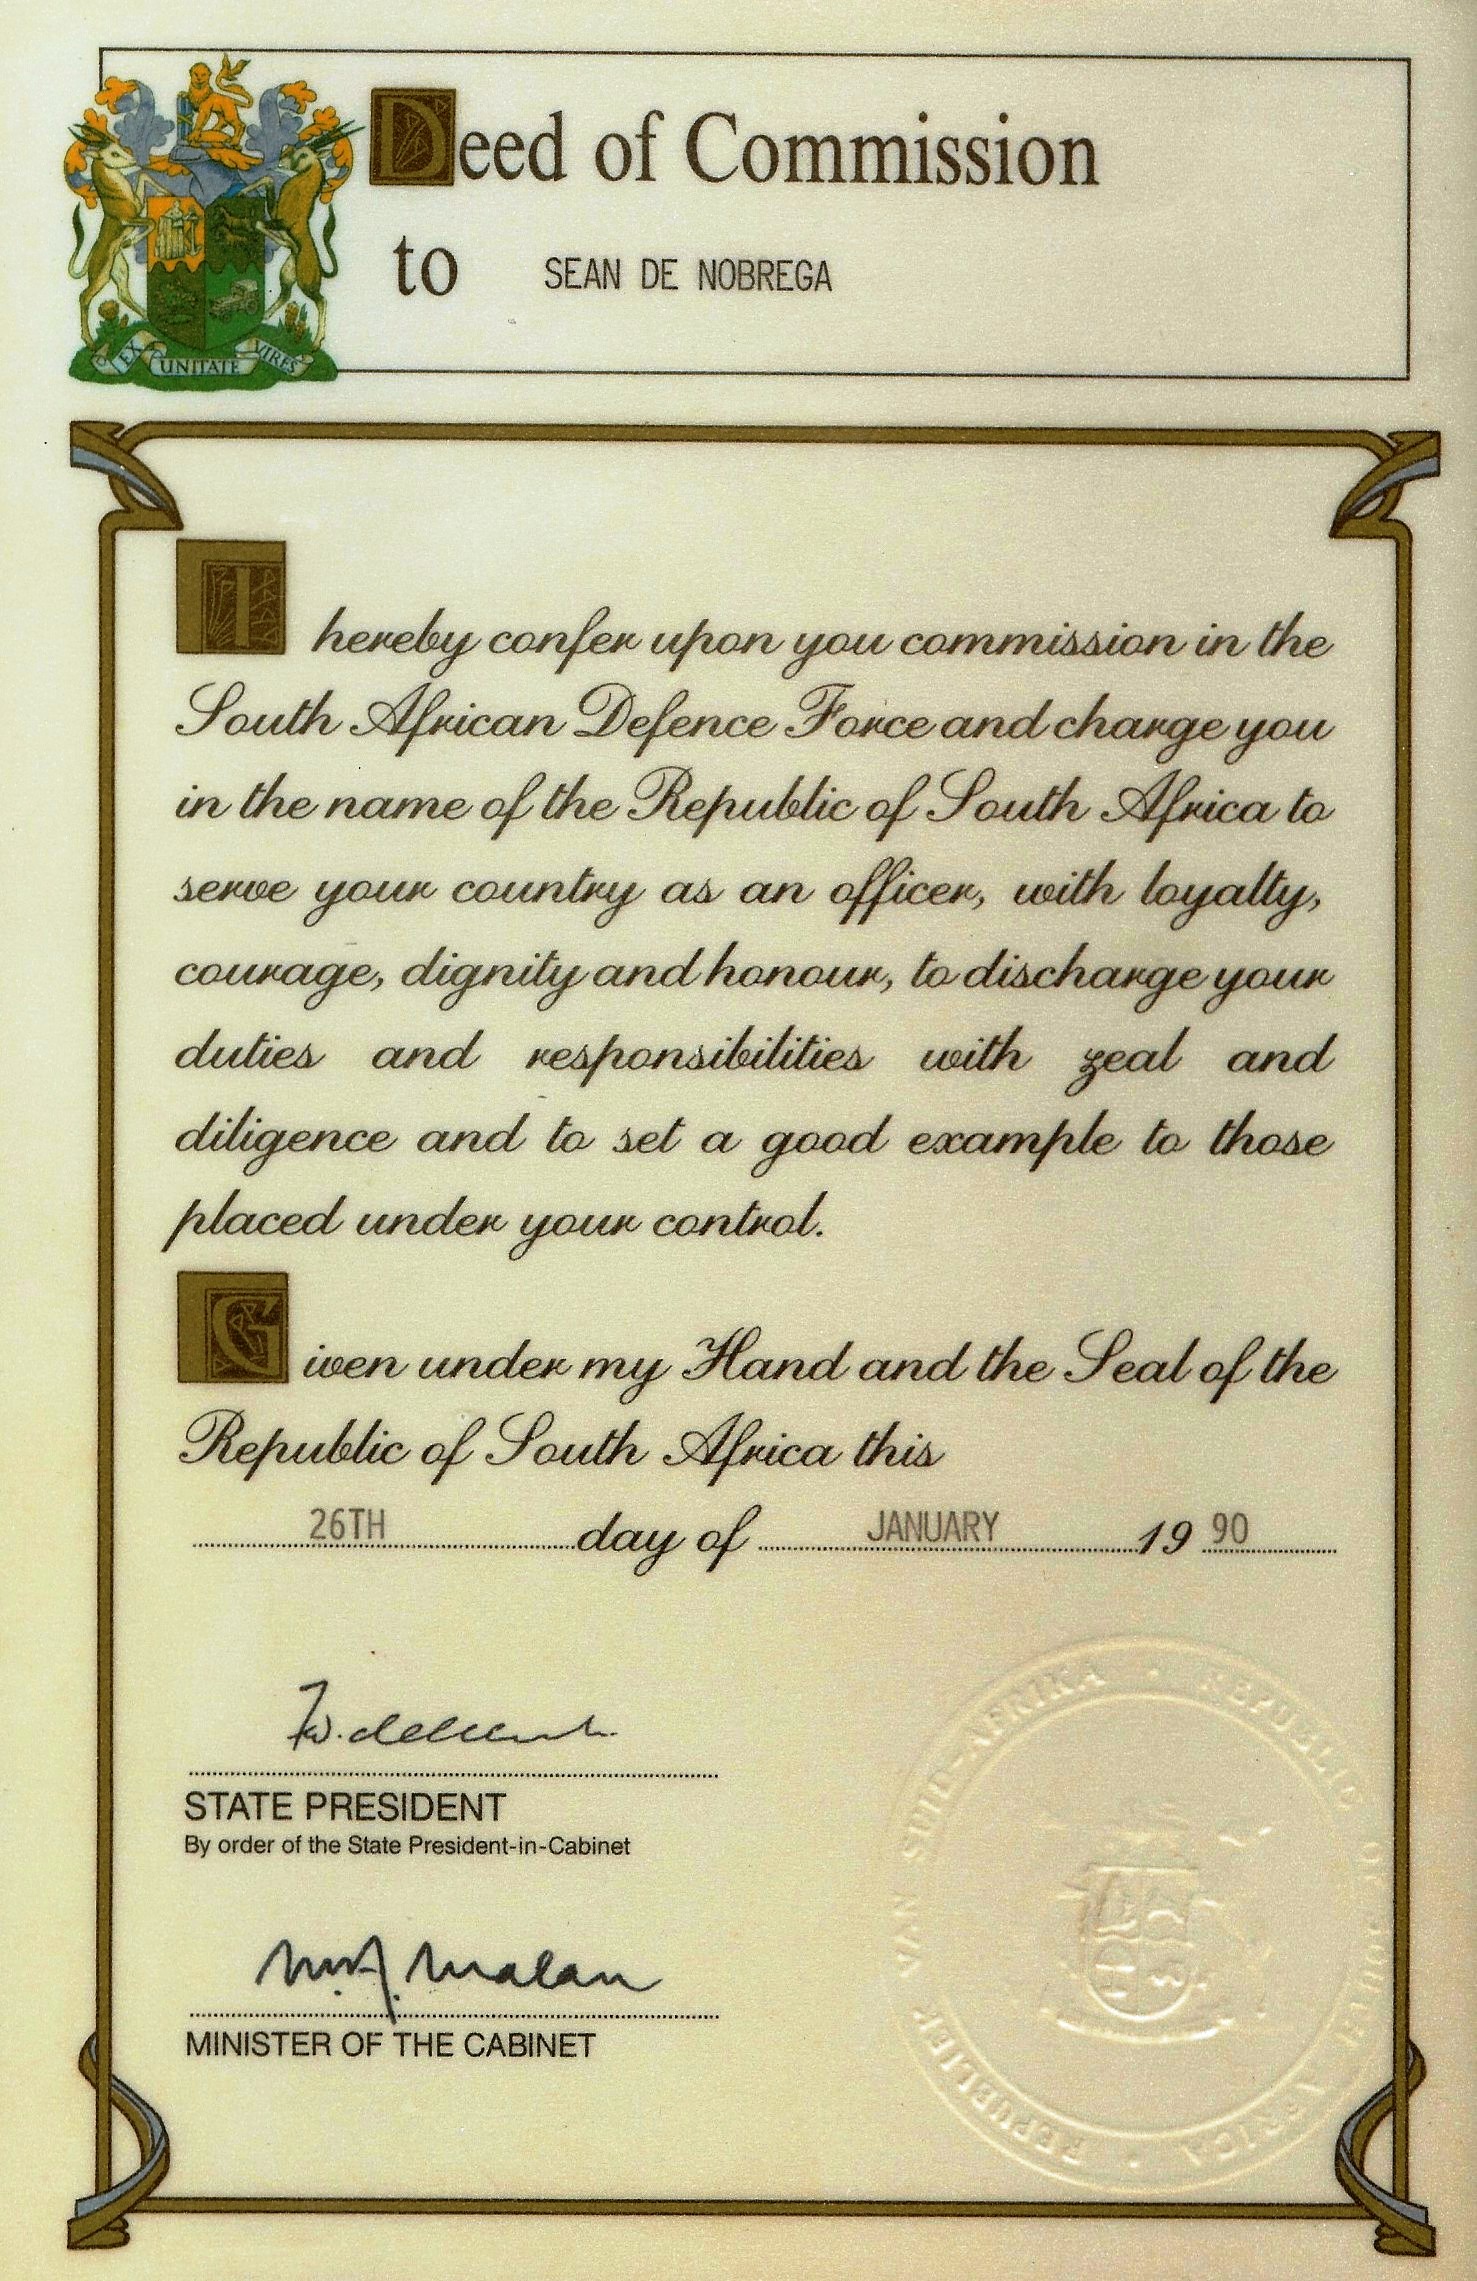 Deed of Commission
to SEAN DE NOBREGA
EX UNITATE VIRES
I hereby confer upon you commission in the
South African Defence Force and charge you
in the name of the Republic of South Africa to
serve your country as an officer, with loyalty,
courage, dignity and honour, to discharge your
duties and responsibilities with zeal and
diligence and to set a good example to those
placed under your control.
Given under my Hand and the Seal of the
Republic of South Africa this
26TH day of JANUARY 19 90
F.W. de Klerk
STATE PRESIDENT
By order of the State President-in-Cabinet
M.A. Malan
MINISTER OF THE CABINET
REPUBLIEK VAN SUID-AFRIKA · REPUBLIC OF SOUTH AFRICA ·